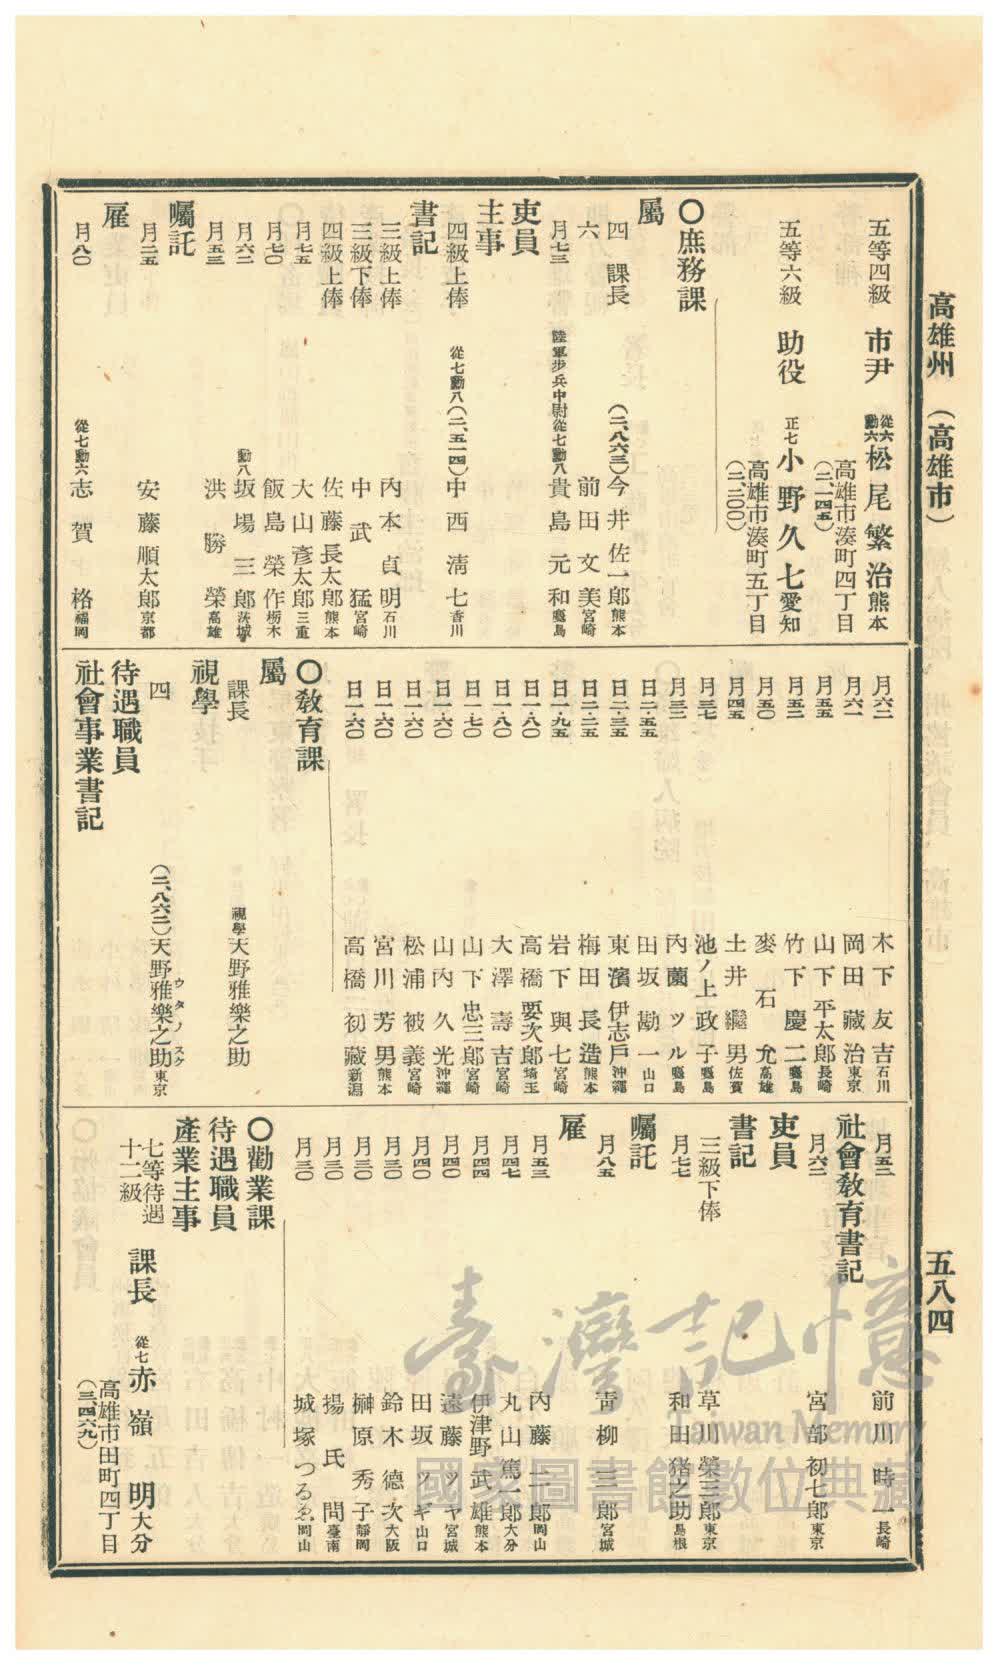 高雄州 (高雄市)
五八四
五等四級 市尹 從六勳六 松尾繁治 熊本
高雄市湊町四丁目
(二、一四五)
五等六級 助役 正七 小野久七 愛知
高雄市湊町五丁目
(二、二〇〇)
〇庶務課
屬
四 課長 (二、八六三) 今井佐一郎 熊本
六 前田文美 宮崎
月七三 陸軍步兵中尉從七勳八 貴島元和 鹿島
吏員
主事
四級上俸 從七勳八(二、五一四) 中西淸七 香川
書記
三級上俸 內本貞明 石川
三級下俸 中武猛 宮崎
四級上俸 佐藤長太郎 熊本
月七五 大山彥太郎 三重
月七〇 飯島榮作 栃木
月六二 勳八 坂場三郎 茨城
月五三 洪勝榮 高雄
囑託
月二五 安藤順太郎 京都
雇
月八〇 從七勳六 志賀格 福岡
月六二 木下友吉 石川
月六一 岡田藏治 東京
月五五 山下平太郎 長崎
月五二 竹下慶二 鹿島
月五〇 麥石允 高雄
月四五 土井繼男 佐賀
月三七 池ノ上政子 鹿島
月三二 內薗ツル 鹿島
日二・五五 田坂勘一 山口
日二・三五 東濱伊志戶 沖繩
日二・二五 梅田長造 熊本
日一・九五 岩下與七 宮崎
日一・八〇 高橋要次郎 埼玉
日一・八〇 大澤壽吉 宮崎
日一・七〇 山下忠三郎 宮崎
日一・六〇 山內久光 沖繩
日一・六〇 松浦被義 宮崎
日一・六〇 宮川芳男 熊本
日一・六〇 高橋初藏 新潟
〇敎育課
屬
課長 視學 天野雅樂之助
視學
四 (二、八六二) 天野雅樂之助 ウタノスケ 東京
待遇職員
社會事業書記
月五二 前川時一 長崎
社會敎育書記
月六二 宮部初七郎 東京
吏員
書記
三級下俸 草川榮三郎 東京
月七七 和田猪之助 島根
囑託
月八五 靑柳三郎 宮城
雇
月五三 內藤二郎 岡山
月四七 丸山篤一郎 大分
月四四 伊津野武雄 熊本
月四〇 遠藤ツヤ 宮城
月四〇 田坂ツギ 山口
月三〇 鈴木德次 大阪
月三〇 榊原秀子 靜岡
月三〇 揚氏問 臺南
月三〇 城塚つるゑ 岡山
〇勸業課
待遇職員
產業主事
七等待遇
十二級 課長 從七 赤嶺明 大分
高雄市田町四丁目
(三、四六九)
臺灣記憶
Taiwan Memory
國家圖書館數位典藏